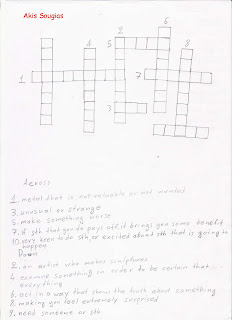 Akis Sougias
6
2
4
5
8
1
7
3
Across
1. metal that is not valuable or not wanted
3. unusual or strange
5. make something worse
7. if sth that you do pays off, it brings you some benefit
10. very keen to do sth, or excited about sth that is going to
happen
Down
2. an artist who makes sculptures
4. examine something in order to be certain that
everything
6. act in a way that shows the truth about something
8. making you feel extremely surprised
9. need someone or sth